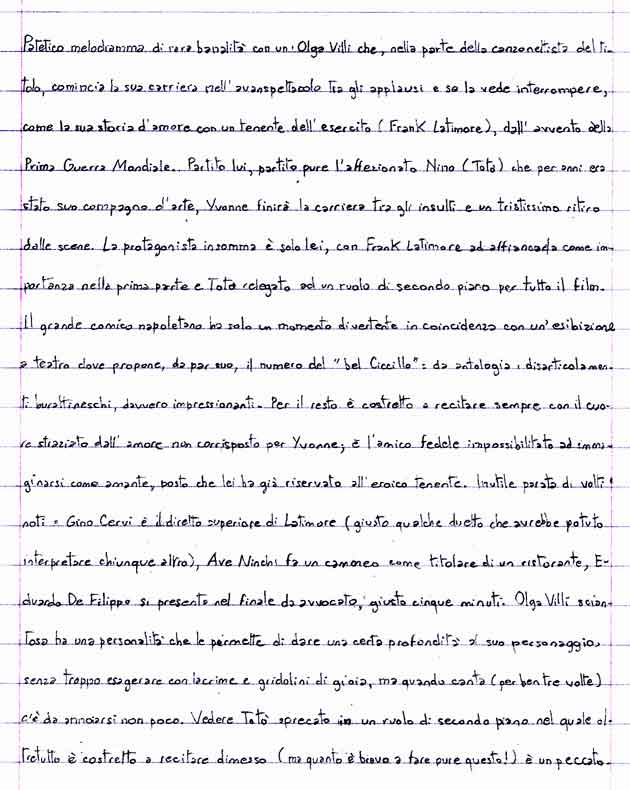 Patetico melodramma di rara banalità con un'Olga Villi che, nella parte della canzonettista del ti-
tolo, comincia la sua carriera nell'avanspettacolo tra gli applausi e se la vede interrompere,
come la sua storia d'amore con un tenente dell'esercito (Frank Latimore), dall'avvento della
Prima Guerra Mondiale. Partito lui, partito pure l'affezionato Nino (Totò) che per anni era
stato suo compagno d'arte, Yvonne finirà la carriera tra gli insulti e un tristissimo ritiro
dalle scene. La protagonista insomma è solo lei, con Frank Latimore ad affiancarla come im-
portanza nella prima parte e Totò relegato ad un ruolo di secondo piano per tutto il film.
Il grande comico napoletano ha solo un momento divertente in coincidenza con un'esibizione
a teatro dove propone, da par suo, il numero del "bel Ciccillo": da antologia i disarticolamen-
ti burattineschi, davvero impressionanti. Per il resto è costretto a recitare sempre con il cuo-
re straziato dall'amore non corrisposto per Yvonne; è l'amico fedele impossibilitato ad imma-
ginarsi come amante, posto che lei ha già riservato all'eroico tenente. Inutile parata di volti
noti: Gino Cervi è il diretto superiore di Latimore (giusto qualche duetto che avrebbe potuto
interpretare chiunque altro), Ave Ninchi fa un cammeo come titolare di un ristorante, E-
duardo De Filippo si presenta nel finale da avvocato, giusto cinque minuti. Olga Villi scian-
tosa ha una personalità che le permette di dare una certa profondità al suo personaggio,
senza troppo esagerare con lacrime e gridolini di gioia, ma quando canta (per ben tre volte)
c'è da annoiarsi non poco. Vedere Totò sprecato in un ruolo di secondo piano nel quale ol-
tretutto è costretto a recitare dimesso (ma quanto è bravo a fare pure questo!) è un peccato.